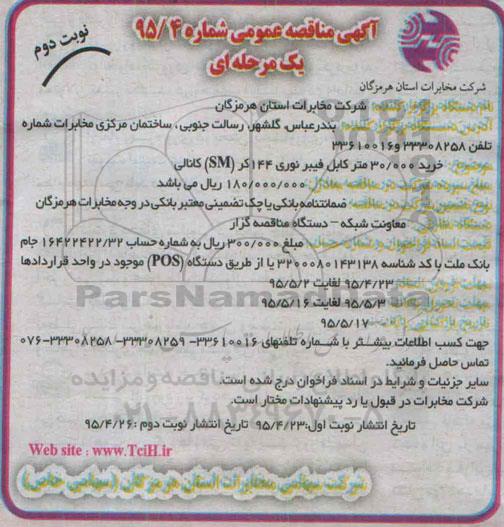 آگهی مناقصه عمومی شماره ۹۵/۴
یک مرحله ای
نوبت دوم
شرکت مخابرات استان هرمزگان
نام دستگاه شرکت مخابرات استان هرمزگان
آدرس دستگاه بندرعباس، گلشهر، رسالت جنوبی، ساختمان مرکزی مخابرات شماره
تلفن ۳۳۳۰۸۲۵۸ و ۳۳۶۱۰۰۱۶
موضوع: خرید ۳۰/۰۰۰ متر کابل فیبر نوری ۱۴۴ کر (SM) کانالی
۱۸۰/۰۰۰/۰۰۰ ریال می باشد
ضمانتنامه بانکی یا چک تضمینی معتبر بانکی در وجه مخابرات هرمزگان
معاونت شبکه – دستگاه مناقصه گزار
مبلغ ۳۰۰/۰۰۰ ریال به شماره حساب ۱۶۴۲۲۴۲۲/۳۲ جام
بانک ملت با کد شناسه ۳۲۰۰۰۸۰۱۴۳۱۳۸ یا از طریق دستگاه (POS) موجود در واحد قراردادها
۹۵/۴/۲۳ لغایت ۹۵/۵/۲
۹۵/۵/۳ لغایت ۹۵/۵/۱۶
۹۵/۵/۱۷
جهت کسب اطلاعات بیشتر با شماره تلفنهای ۳۳۶۱۰۰۱۶– ۳۳۳۰۸۲۵۹– ۳۳۳۰۸۲۵۸–۰۷۶
تماس حاصل فرمائید.
سایر جزئیات و شرایط در اسناد فراخوان درج شده است.
شرکت مخابرات در قبول یا رد پیشنهادات مختار است.
تاریخ انتشار نوبت اول: ۹۵/۴/۲۳ تاریخ انتشار نوبت دوم: ۹۵/۴/۲۶
Web site : www.TciH.ir
شرکت سهامی مخابرات استان هرمزگان (سهامی خاص)